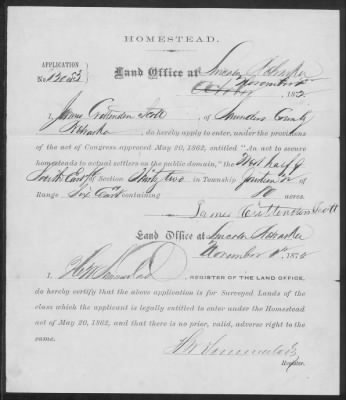 HOMESTEAD.
APPLICATION
No. 13083
Land Office at Lincoln Nebraska
November 1st 1872
I, James Crittenden Scott of Saunders County
Nebraska, do hereby apply to enter, under the provisions
of the act of Congress approved May 20, 1862, entitled "An act to secure
homesteads to actual settlers on the public domain," the West half of
South East 1/4 of Section Thirty two in Township
of
Range Six East containing 80 acres.
James Crittenden Scott
Land Office at Lincoln Nebraska
November 1st 1872
I, REGISTER OF THE LAND OFFICE,
do hereby certify that the above application is for Surveyed Lands of the
class which the applicant is legally entitled to enter under the Homestead
act of May 20, 1862, and that there is no prior, valid, adverse right to the
same.
Register.